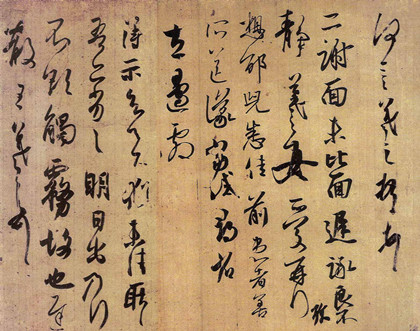 何言羲之頓首
二謝面未比面遲詠良不
靜羲之女愛再拜
想邵兒悉佳前患者善
所送議當試尋省
左邊劇
得示知足下猶未佳耿
吾亦劣々明日出乃行
不欲觸霧故也遲
散王羲之頓首